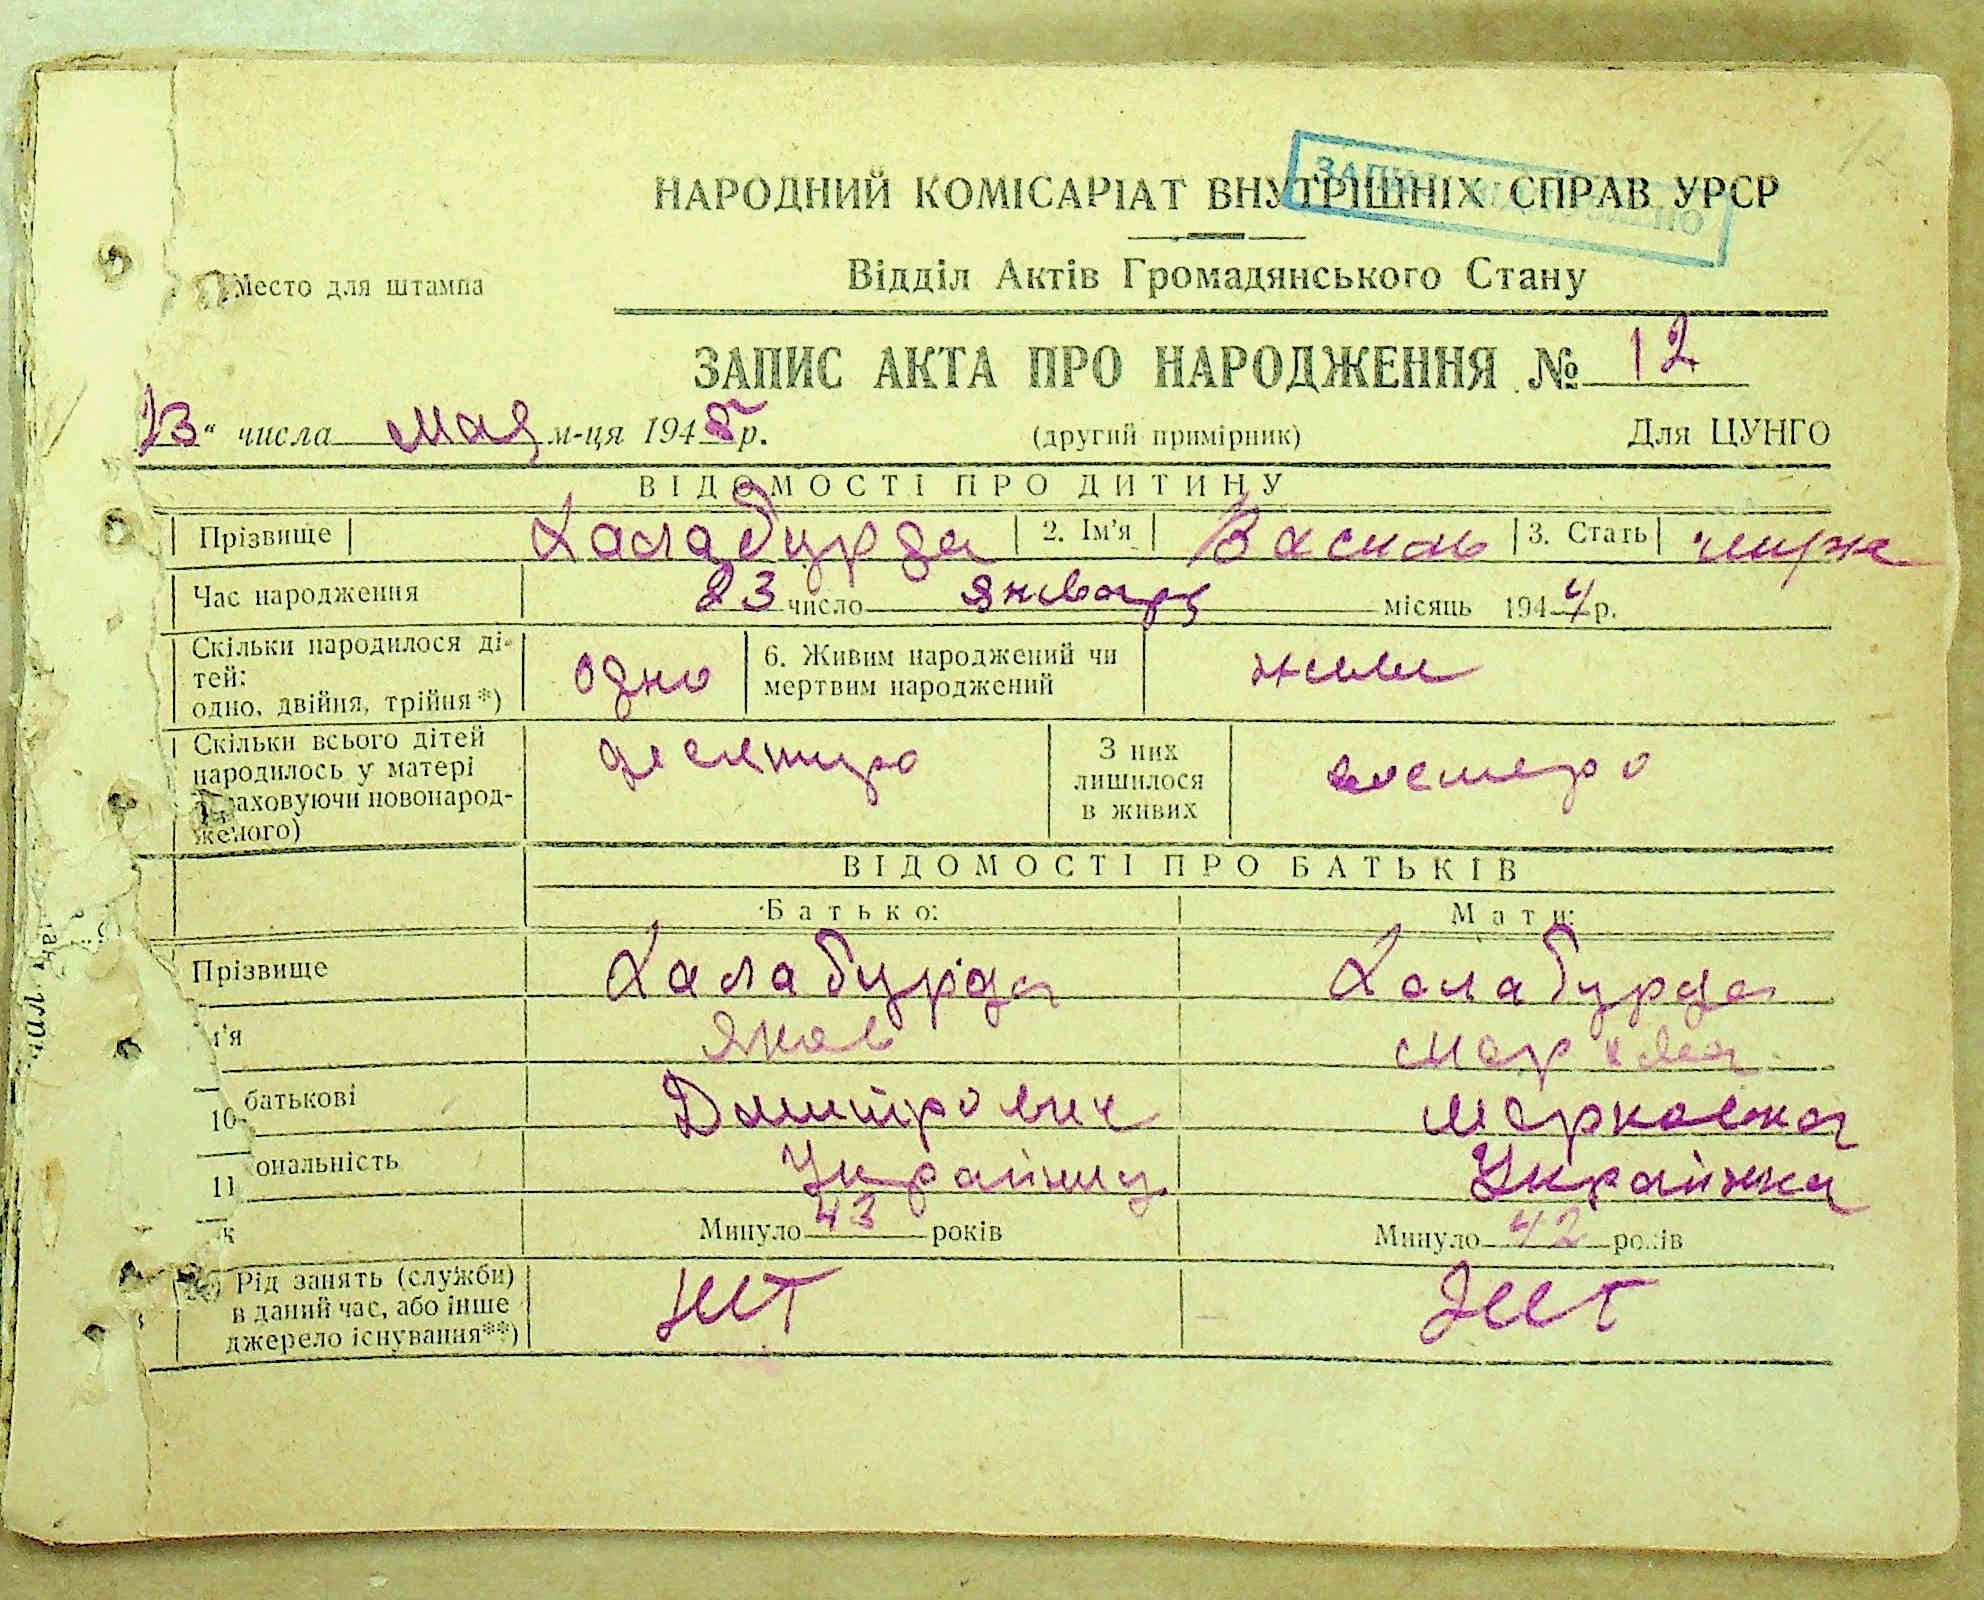 НАРОДНИЙ КОМІСАРІАТ ВНУТРІШНІХ СПРАВ УРСР
Место для штампа
Відділ Актів Громадянського Стану
ЗАПИС АКТА ПРО НАРОДЖЕННЯ № 12
13 " числа мая м-ця 1945 р. (другий примірник) Для ЦУНГО
ВІДОМОСТІ ПРО ДИТИНУ
Прізвище Халабурда 2. Ім'я Василь 3. Стать
Час народження 23 число января місяць 1944 р.
Скільки народилося ді-
тей:
одно, двійня, трійня*) одно
6. Живим народжений чи
мертвим народжений живи
Скільки всього дітей
народилось у матері
раховуючи новонарод-
женого) десятеро
З них
лишилося
в живих восьмеро
ВІДОМОСТІ ПРО БАТЬКІВ
Батько: Мати:
Прізвище Халабурда Халабурда
м'я Яков
10 батькові Дмитрович Марковна
11 ональність Українец Українка
к Минуло 43 років Минуло 42 років
Рід занять (служби)
в даний час, або інше
джерело існування**) нет нет